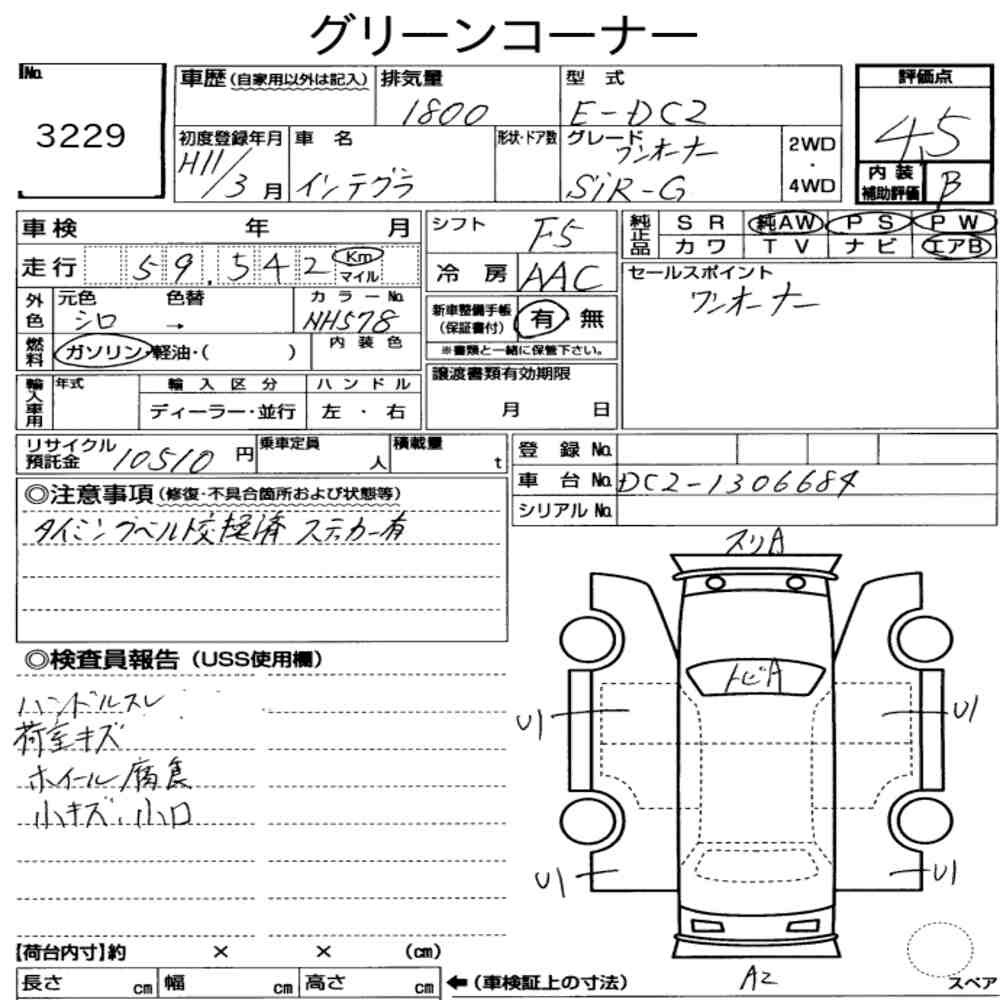 グリーンコーナー
No. 3229
車歴(自家用以外は記入) 排気量 1800 型式 E-DC2
初度登録年月 H11/3月 車名 インテグラ 形状・ドア数 グレード ワンオーナー SiR-G 2WD・4WD
評価点 4.5
内装補助評価 B
車検 年 月
走行 59,542 Km マイル
外色 元色 シロ 色替 → カラーNo. NH578
燃料 ガソリン・軽油・( ) 内装色
輸入車用 年式 輸入区分 ハンドル
ディーラー・並行 左・右
シフト F5
冷房 AAC
新車整備手帳(保証書付) 有 無
※書類と一緒に保管下さい。
譲渡書類有効期限
月 日
純正品 SR 純AW PS PW
カワ TV ナビ エアB
セールスポイント
ワンオーナー
リサイクル預託金 10510円 乗車定員 人 積載量 t
登録No.
車台No. DC2-1306684
シリアルNo.
◎注意事項(修復・不具合箇所および状態等)
タイミングベルト交換済 ステッカー有
◎検査員報告(USS使用欄)
ハンドルスレ
荷室キズ
ホイール腐食
小キズ、小凹
スリA
トビA
U1
U1
U1
U1
A2
スペア
【荷台内寸】約 × × (cm)
長さ cm 幅 cm 高さ cm ←(車検証上の寸法)